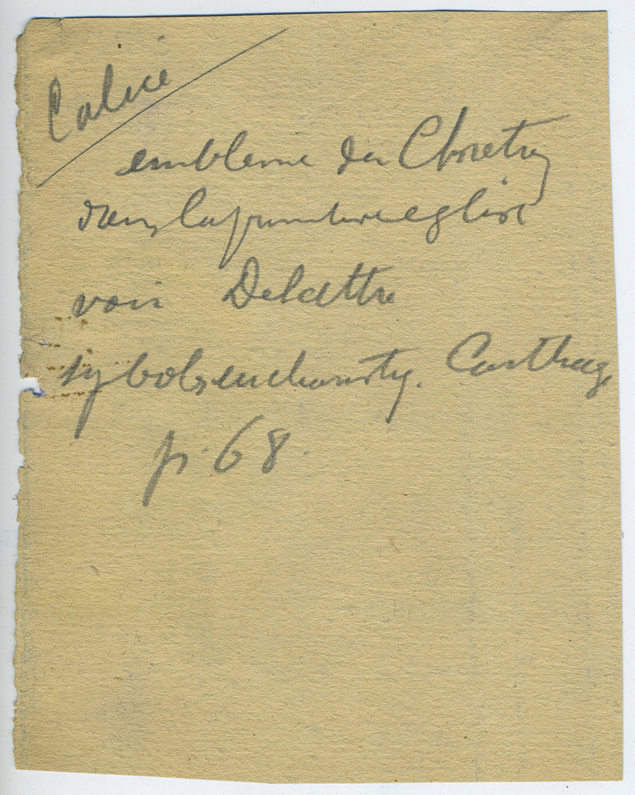 Calice
embleme du Chretien
dans la primitive eglise
voir Delattre
sybols eucharisty. Carthage
p. 68.